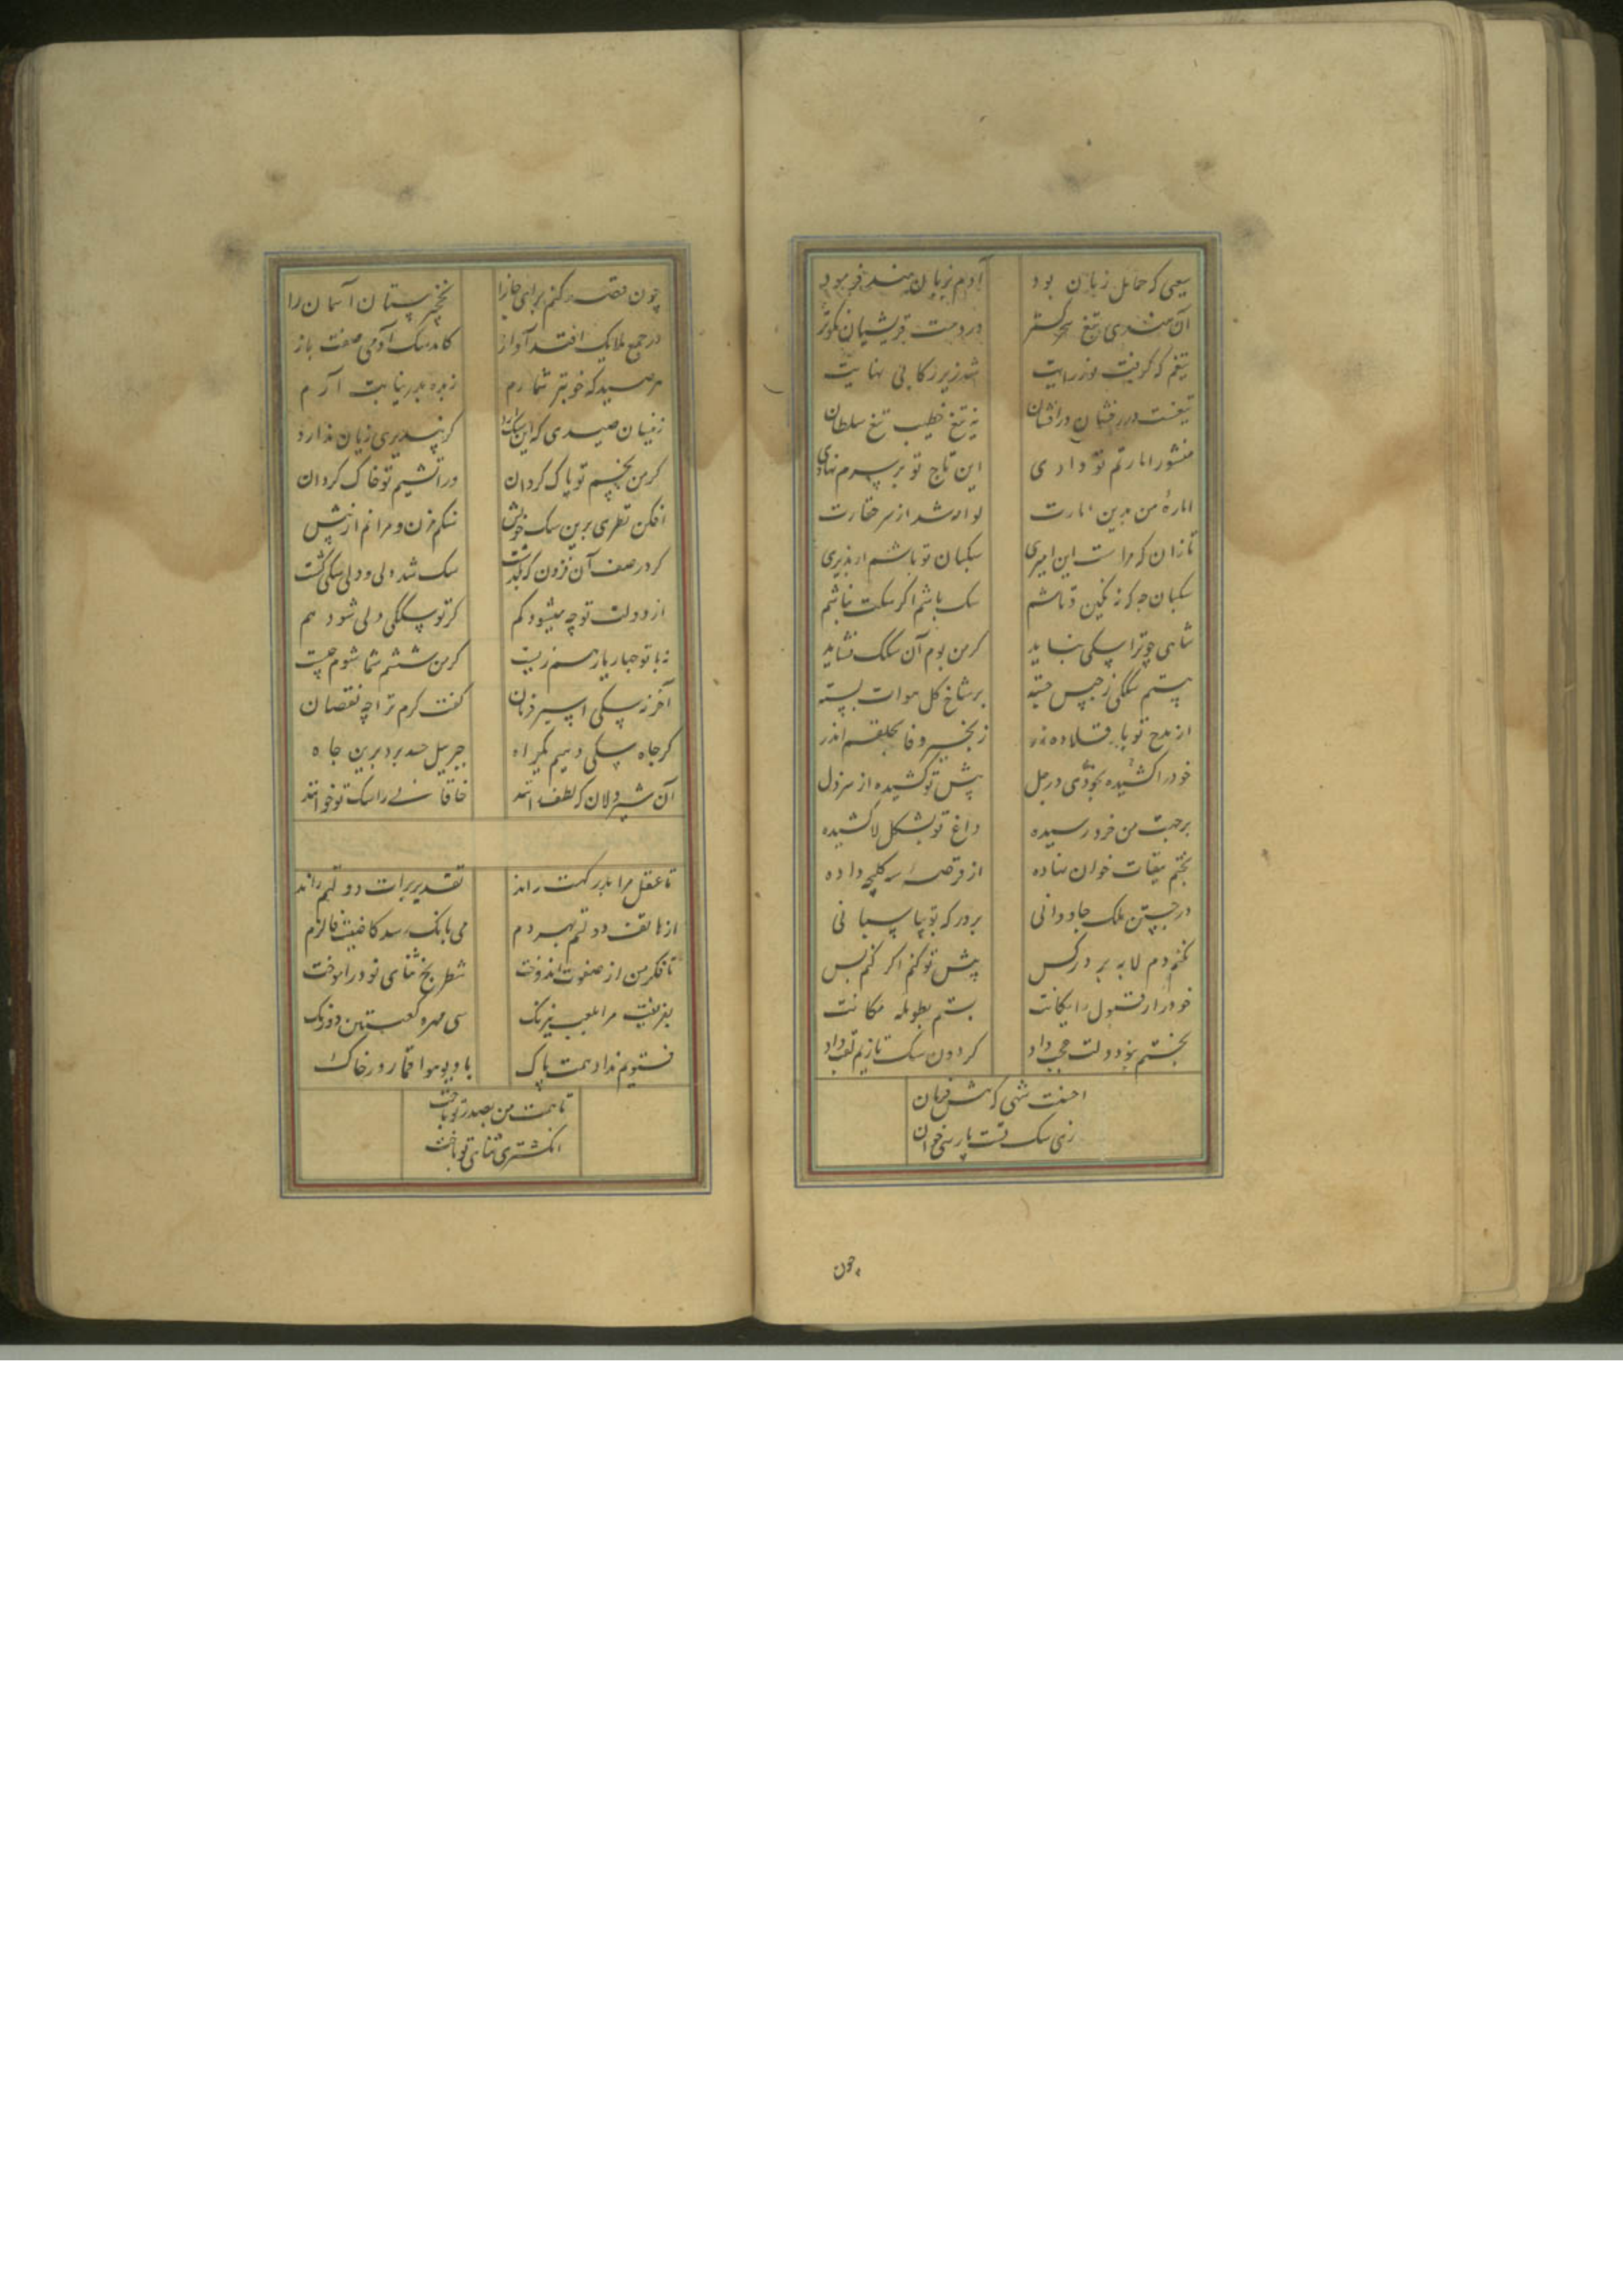 سیعی که حمایل زبان بود آدم بزبان هند فرمود
آن هندی تیغ سحر گستر در دست قریشیان نکوتر
تیغم که گرفت روز رایت شد زیر رکابی نهایت
تیغست درر فشان درافشان نه تیغ خطیب تیغ سلطان
منشور امارتم تو دادی این تاج تو بر سرم نهادی
امارهٔ من بدین امارت لوامه شد از سر حقارت
تا زان که مراست این امیری سکبان تو باشم ار پذیری
سکبان چه که زنکین قماشم سک باشم اکر سکت نباشم
شاهی چو ترا سکی نباید کر من بوم آن سکک نشاید
هستم سککی ز حبس جسته بر شاخ کل هوات بسته
از مدح تو با قلاده زر زنجیر وفا بحلقم اندر
خود را کشیده بخودی در جل پیش تو کشیده از سر ذل
بر جبهت من خرد رسیده داغ تو بشکل لا کشیده
بختم بیقات خوان نهاده از قرصه کلیچه داده
در جستن ملک جاودانی بر درکه تو بپاسبانی
نکنم دم لابه بر در کس پیش تو کنم اکر کنم بس
خود را ز قبول رایکانت بستم بطویله مکانت
بختم بخود دولت عجب داد کردون سک تازیم لقب داد
احسنت شهی که هش فرمان
زی سک تست پارسی خوان
چون
چون قصه کنم برای جانرا نخچیرستان آسمان را
در جمع ملایک افتد آواز کامد سک آدمی صفت باز
هر صید که خوبتر شمارم زنده بدر نیابت آرم
زنیسان صیدی که این سک آرد کر بپذیری زیان ندارد
کر من نجسم تو پاک کردان ور آتشیم تو خاک کردان
افکن نظری برین سک خویش سنکم مزن و مرانم از پیش
کر در صف آن فزون که بکذشت سک شد ولی و ولی سکی کشت
از دولت تو چه میشود کم کر تو سککی ولی شود هم
نه با تو چهار یار هم زیست کر من ششم شما شوم چیست
آخر نه سکی اسیر فرمان کفت کرم ترا چه نقصان
کر جاه سکی دهیم یکراه جبریل حسد برد برین جاه
آن شیردلان که لطف دانند خاقانی را سک تو خوانند
تا عقل مرا بدر کهت راند تقدیر برات دولتم راند
از هاتف دولتم بهر دم می بانک رسد کاضبت فالزم
تا فکر من از صفوت اندوخت شطرنج ثنای تو درآموخت
بفریفت مرا بلعب نیرنک سی مهره کعبتین دو رنک
فتویم نداد همت پاک با دیو هوا قمار در خاک
تا همت من بصدر تو تاخت
انکشتری ثنای تو باخت